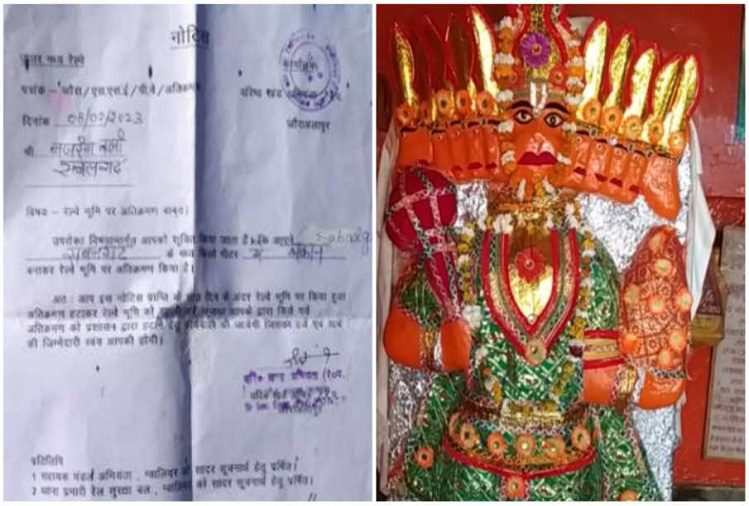 नोटिस
उत्तर मध्य रेल्वे
कार्यालय
पत्रांक - जौरा/एस.एस.ई/पी.वे/अतिक्रमण
वरिष्ठ खण्ड अभियंता
दिनांक 08/02/2023
जौराअलापुर
श्री बजरंग बली
सबलगढ
विषय - रेल्वे भूमि पर अतिक्रमण बाबत।
उपरोक्त विषयान्तर्गत आपको सूचित किया जाता है कि आपने
सबलगढ के मध्य किमी मकान
बनाकर रेल्वे भूमि पर अतिक्रमण किया है।
अतः आप इस नोटिस प्राप्ति के सात दिन के अंदर रेल्वे भूमि पर किया हुआ
अतिक्रमण हटाकर रेल्वे भूमि को खाली करें अन्यथा आपके द्वारा किये गये
अतिक्रमण को प्रशासन द्वारा हटाने हेतु कार्यवाही की जावेगी जिसका हर्जे एवं खर्चे
की जिम्मेदारी स्वयं आपकी होगी।
प्रतिलिपि
1 सहायक मंडल अभियंता, ग्वालियर को सादर सूचनार्थ हेतु प्रर्षित।
2 थाना प्रभारी रेल सुरक्षा बल, ग्वालियर को सादर सूचनार्थ हेतु प्रर्षित।